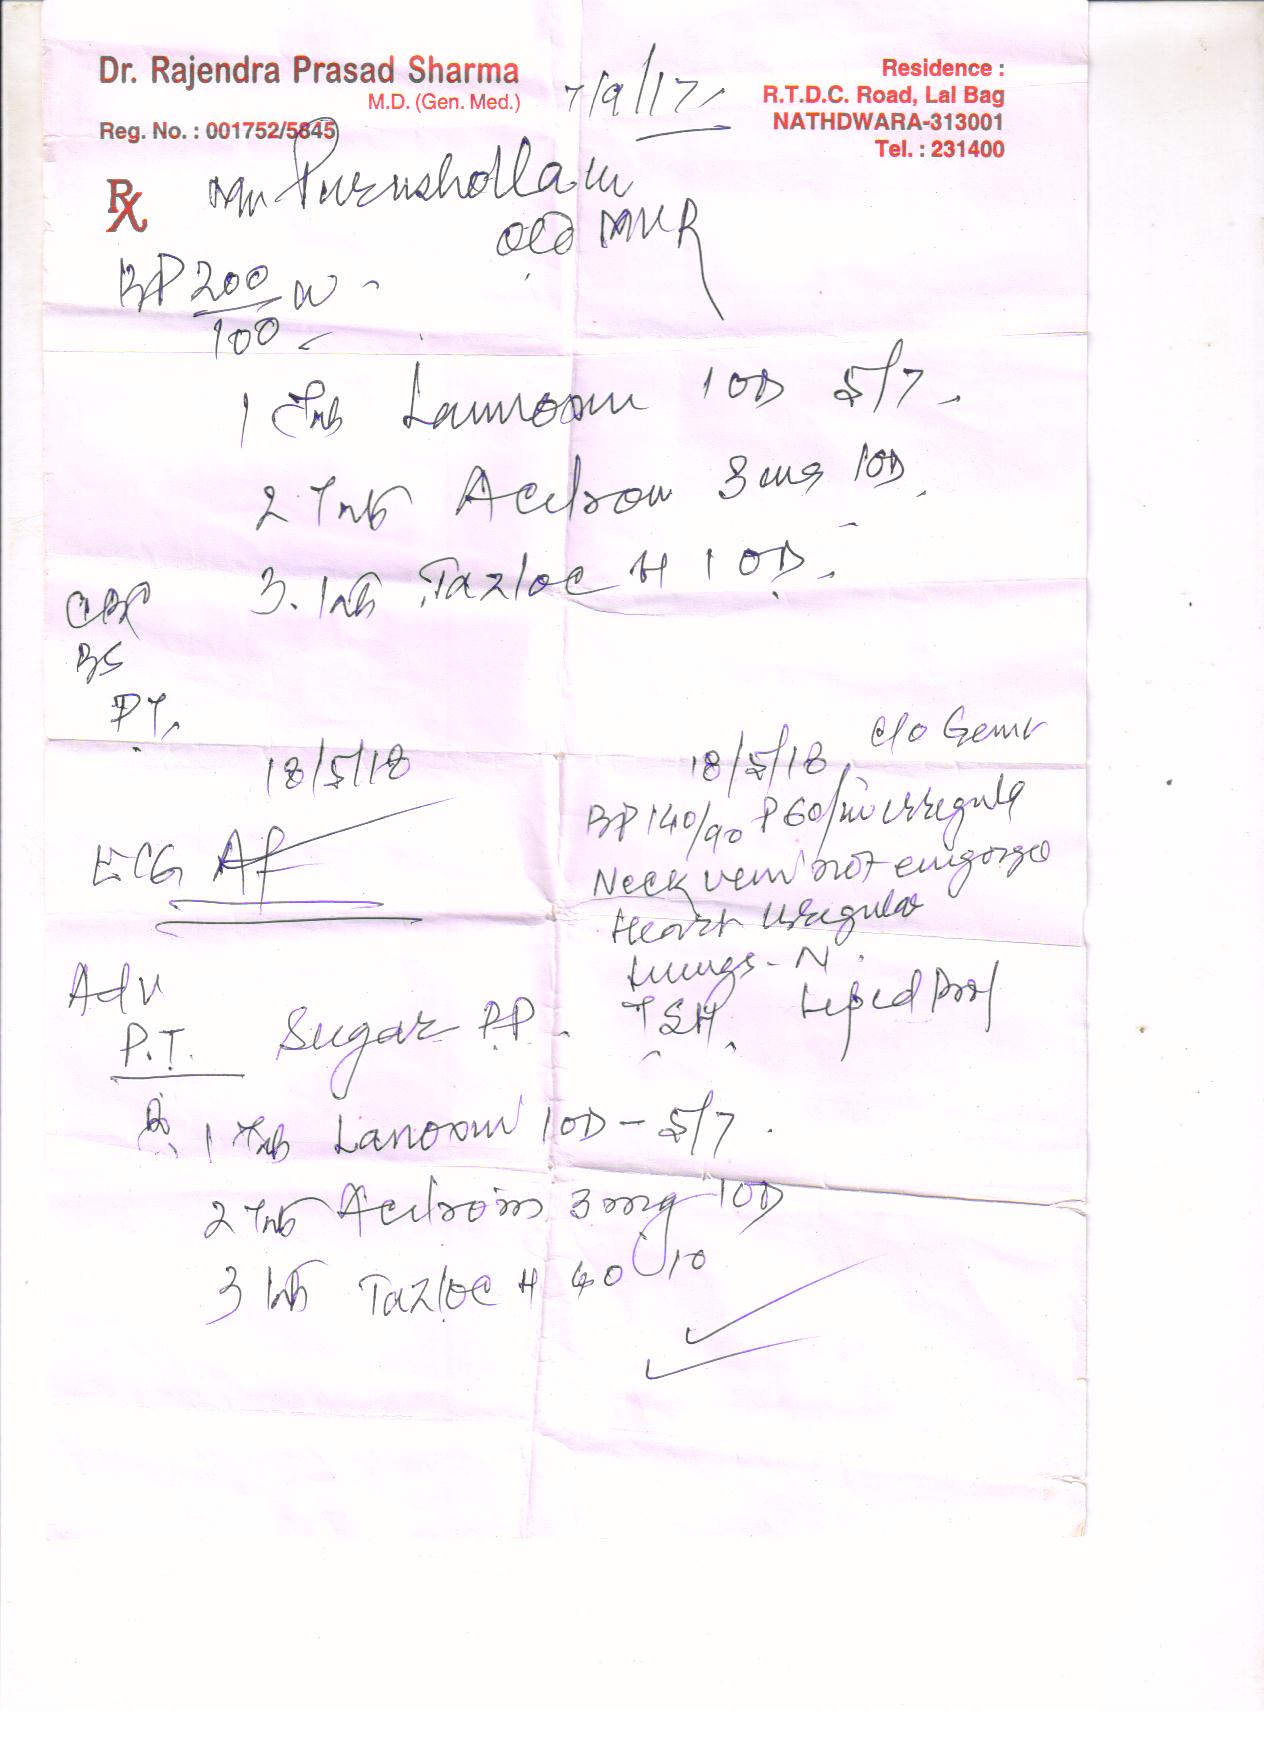 Dr. Rajendra Prasad Sharma
M.D. (Gen. Med.)
Reg. No. : 001752/5645
7/9/17
Residence :
R.T.D.C. Road, Lal Bag
NATHDWARA-313001
Tel. : 231400
Rx Mr Purushottam
Old MVR
BP 200/100
1 Tab Lanoxin 1 OD 5/7
2 Tab Acitrom 3 mg 1 OD
3. Tab Tazloc H 1 OD
BS
PT
18/5/18
ECG AF
18/5/18 C/O
BP 140/90 P 60/m irregular
Neck vein not engorged
Heart irregular
Lungs - N
TSH Lipid Prof
Adv
P.T. Sugar PP
R
1 Tab Lanoxin 1 OD - 5/7
2 Tab Acitrom 3 mg 1 OD
3 Tab Tazloc H 40